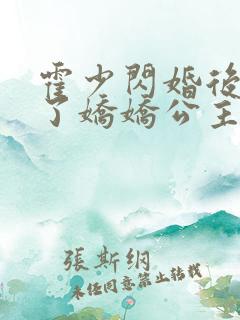 霍少閃婚後
了嬌嬌公主
張斯綱
未經同意禁止轉載